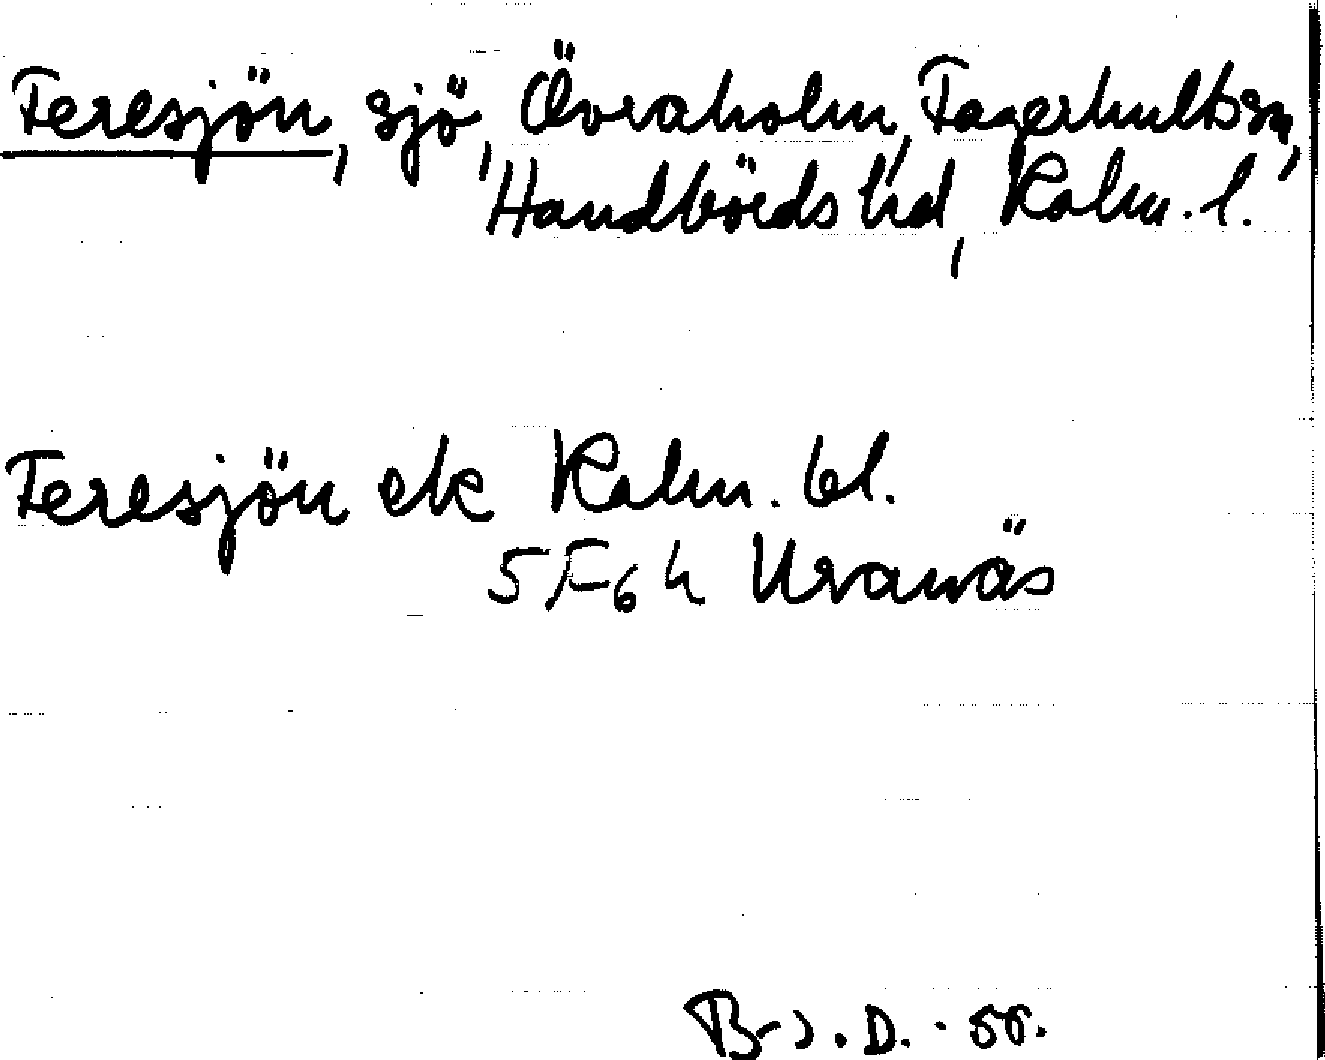 Feresjön, sjö, Övraholm, Fagerhults sn,
Handbörds hd, Kalm. l.
Feresjön ek Kalm. bl.
5 F 6 h Uranäs
B-J. D. - 55.